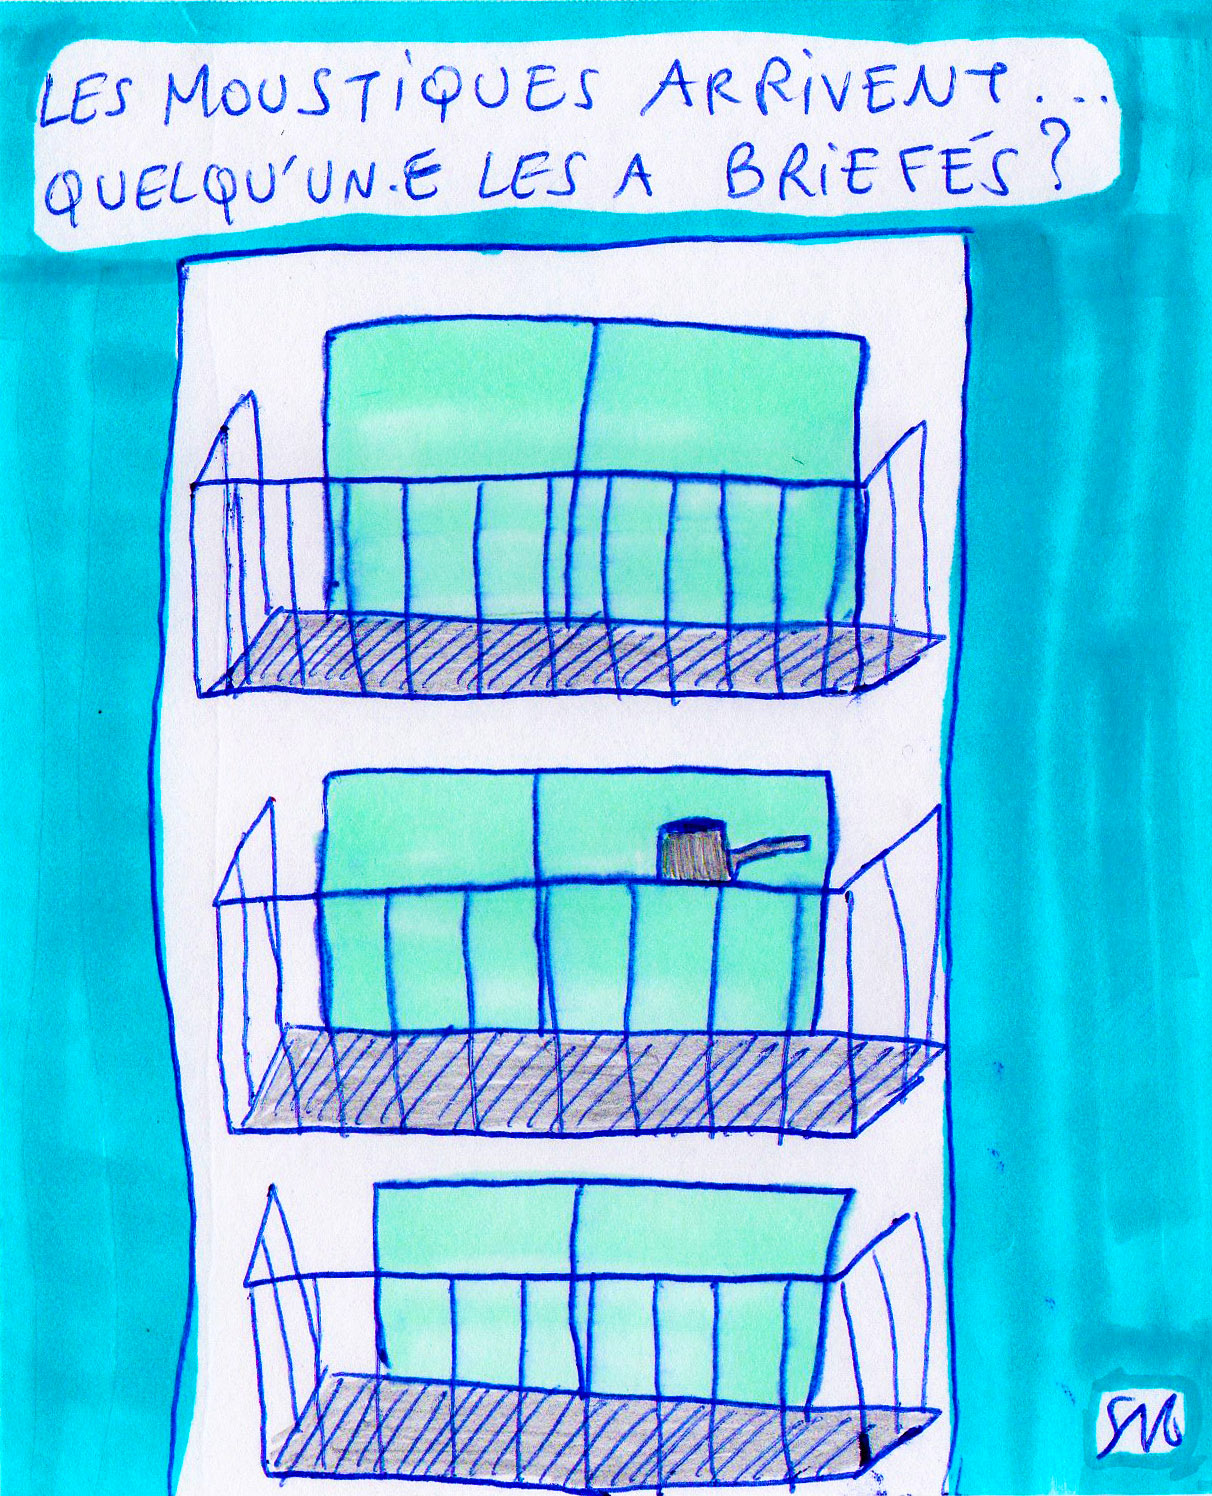 LES MOUSTIQUES ARRIVENT...
QUELQU'UN.E LES A BRIEFÉS?